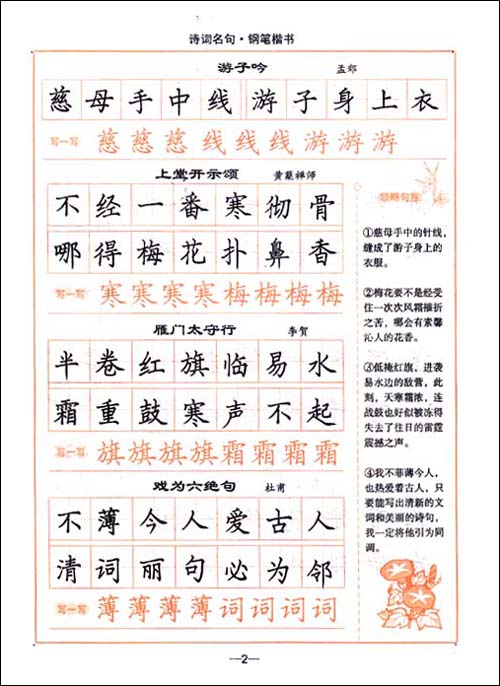 诗词名句·钢笔楷书
游子吟 孟郊
慈母手中线游子身上衣
写一写 慈慈慈线线线游游游
上堂开示颂 黄蘖禅师
不经一番寒彻骨
哪得梅花扑鼻香
写一写 寒寒寒寒梅梅梅梅
雁门太守行 李贺
半卷红旗临易水
霜重鼓寒声不起
写一写 旗旗旗旗霜霜霜霜
戏为六绝句 杜甫
不薄今人爱古人
清词丽句必为邻
写一写 薄薄薄薄词词词词
领略句意
①慈母手中的针线，
缝成了游子身上的
衣服。
②梅花要不是经受
住一次次风霜摧折
之苦，哪会有素馨
沁人的花香。
③低掩红旗，进袭
易水边的敌营，此
刻，天寒霜浓，连
战鼓也好似被冻得
失去了往日的雷霆
震撼之声。
④我不菲薄今人，
也热爱着古人，只
要能写出清新的文
词和美丽的诗句，
我一定将他引为同
调。
—2—